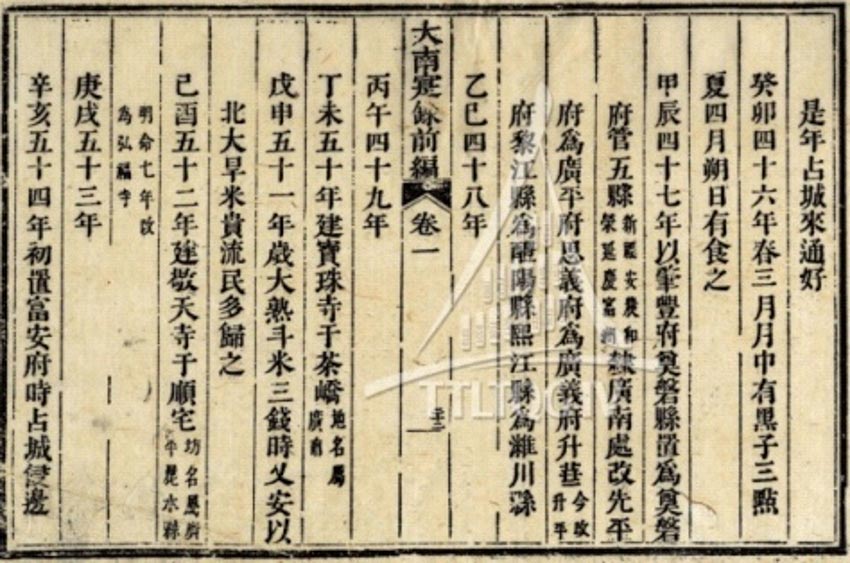 是年占城來通好
癸卯四十六年春三月月中有黑子三點
夏四月朔日有食之
甲辰四十七年以肇豐府奠磐縣置爲奠磐
府管五縣新福安農和榮延慶富洲隸廣南處改先平
府爲廣平府思義府爲廣義府升華今改升平
府黎江縣爲醴陽縣熙江縣爲濰川縣
乙巳四十八年
大南寔錄前編 卷一
丙午四十九年
丁未五十年建寶珠寺于茶嶠地名屬廣南
戊申五十一年歲大熟斗米三錢時乂安以
北大旱米貴流民多歸之
己酉五十二年建敬天寺于順宅坊名屬廣平麗水縣
明命七年改爲弘福寺
庚戌五十三年
辛亥五十四年初置富安府時占城侵邊
TTLTQGIV